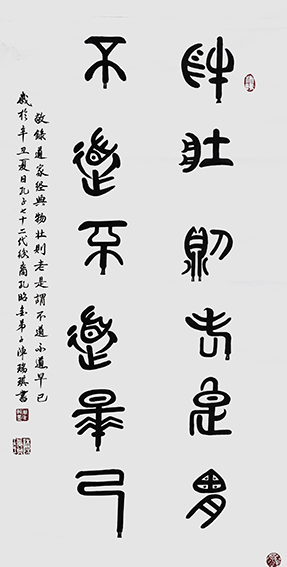 物壯則老是謂
不道不道早已
敬錄道家經典物壯則老是謂不道不道早已
歲於辛丑夏日孔子七十二代後裔孔昭弟子瑞琪書